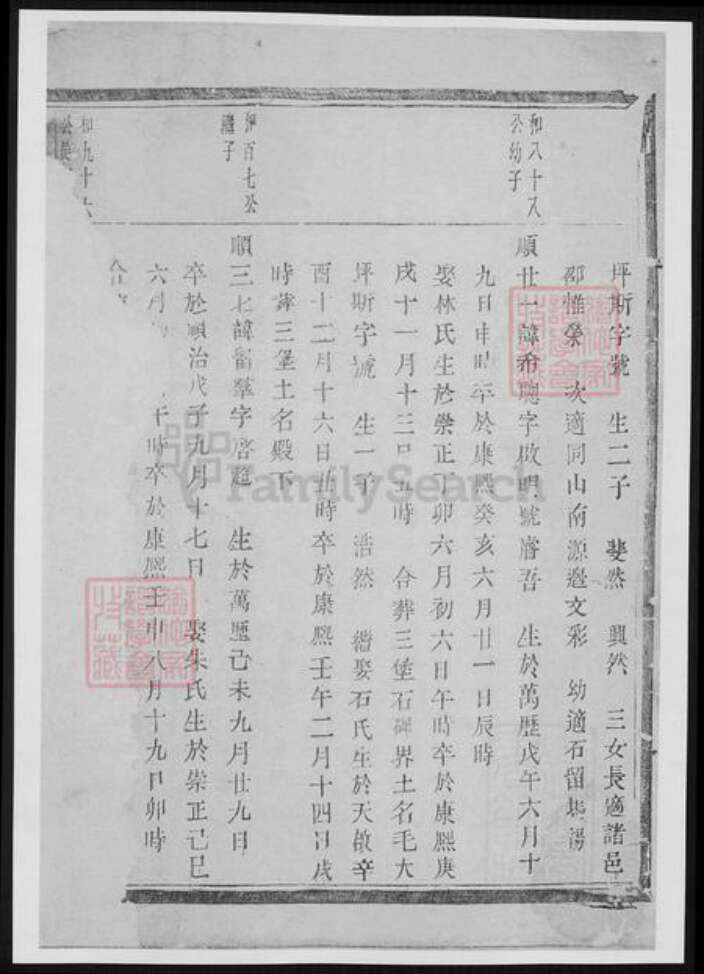 坪斯字號　生二子　斐然　興然　三女長適諸邑
邵惟榮　次適同山南源邊文彩　幼適石留馬湯
和八十八
公幼子
順廿一諱希聰字啟明號睿吾　生於萬歷戊午六月十
九日申時卒於康熙癸亥六月廿一日辰時
娶林氏生於崇正丁卯六月初六日午時卒於康熙庚
戌十一月十三日五時　合葬三堡石碑界土名毛大
坪斯字號　生一子　浩然　續娶石氏生於天啟辛
酉十二月十六日丑時卒於康熙壬午二月十四日戌
時葬三堡土名殿下
和百七公
繼子
順三七諱 字啓超　生於萬歷己未九月廿九日
卒於順治戊子九月十七日　娶朱氏生於崇正己巳
六月 午時卒於康熙壬申八月十九日卯時
和九十六
公長
合
FamilySearch